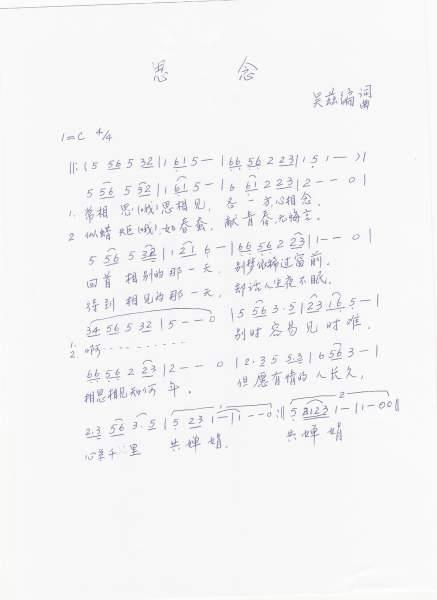 思 念
吴兹编 词曲
1=C 4/4
‖:(5 56 5 32|1 61 5 —|66 56 2 23|1 5 1 —)|
5 56 5 52|1 61 5 —|6 61 2 23|2 — — 0|
1. 常相思(哦)思相见, 各一方,心相念.
2. 似蜡炬(哦),如春蚕, 献青春,无悔言.
5 56 5 32|1 21 6 —|66 56 2 23|1 — — 0|
回首相别的那一天, 别梦依稀过窗前.
待到相见的那一天, 却话人生夜不眠.
34 56 5 32|5 — — 0 |5 56 3·5|23 16 5 —|
1. 2. 啊·········· 别时容易见时难.
66 56 2 23|2 — — 0 |2·3 5 53|6 56 3 —|
相思相见知何年. 但愿有情的人长久,
2·3 56 3·5|5 23 1 —|1 — — 0:‖5 3123 1 —|1 — 00‖
心系千里 共婵娟. 共婵娟